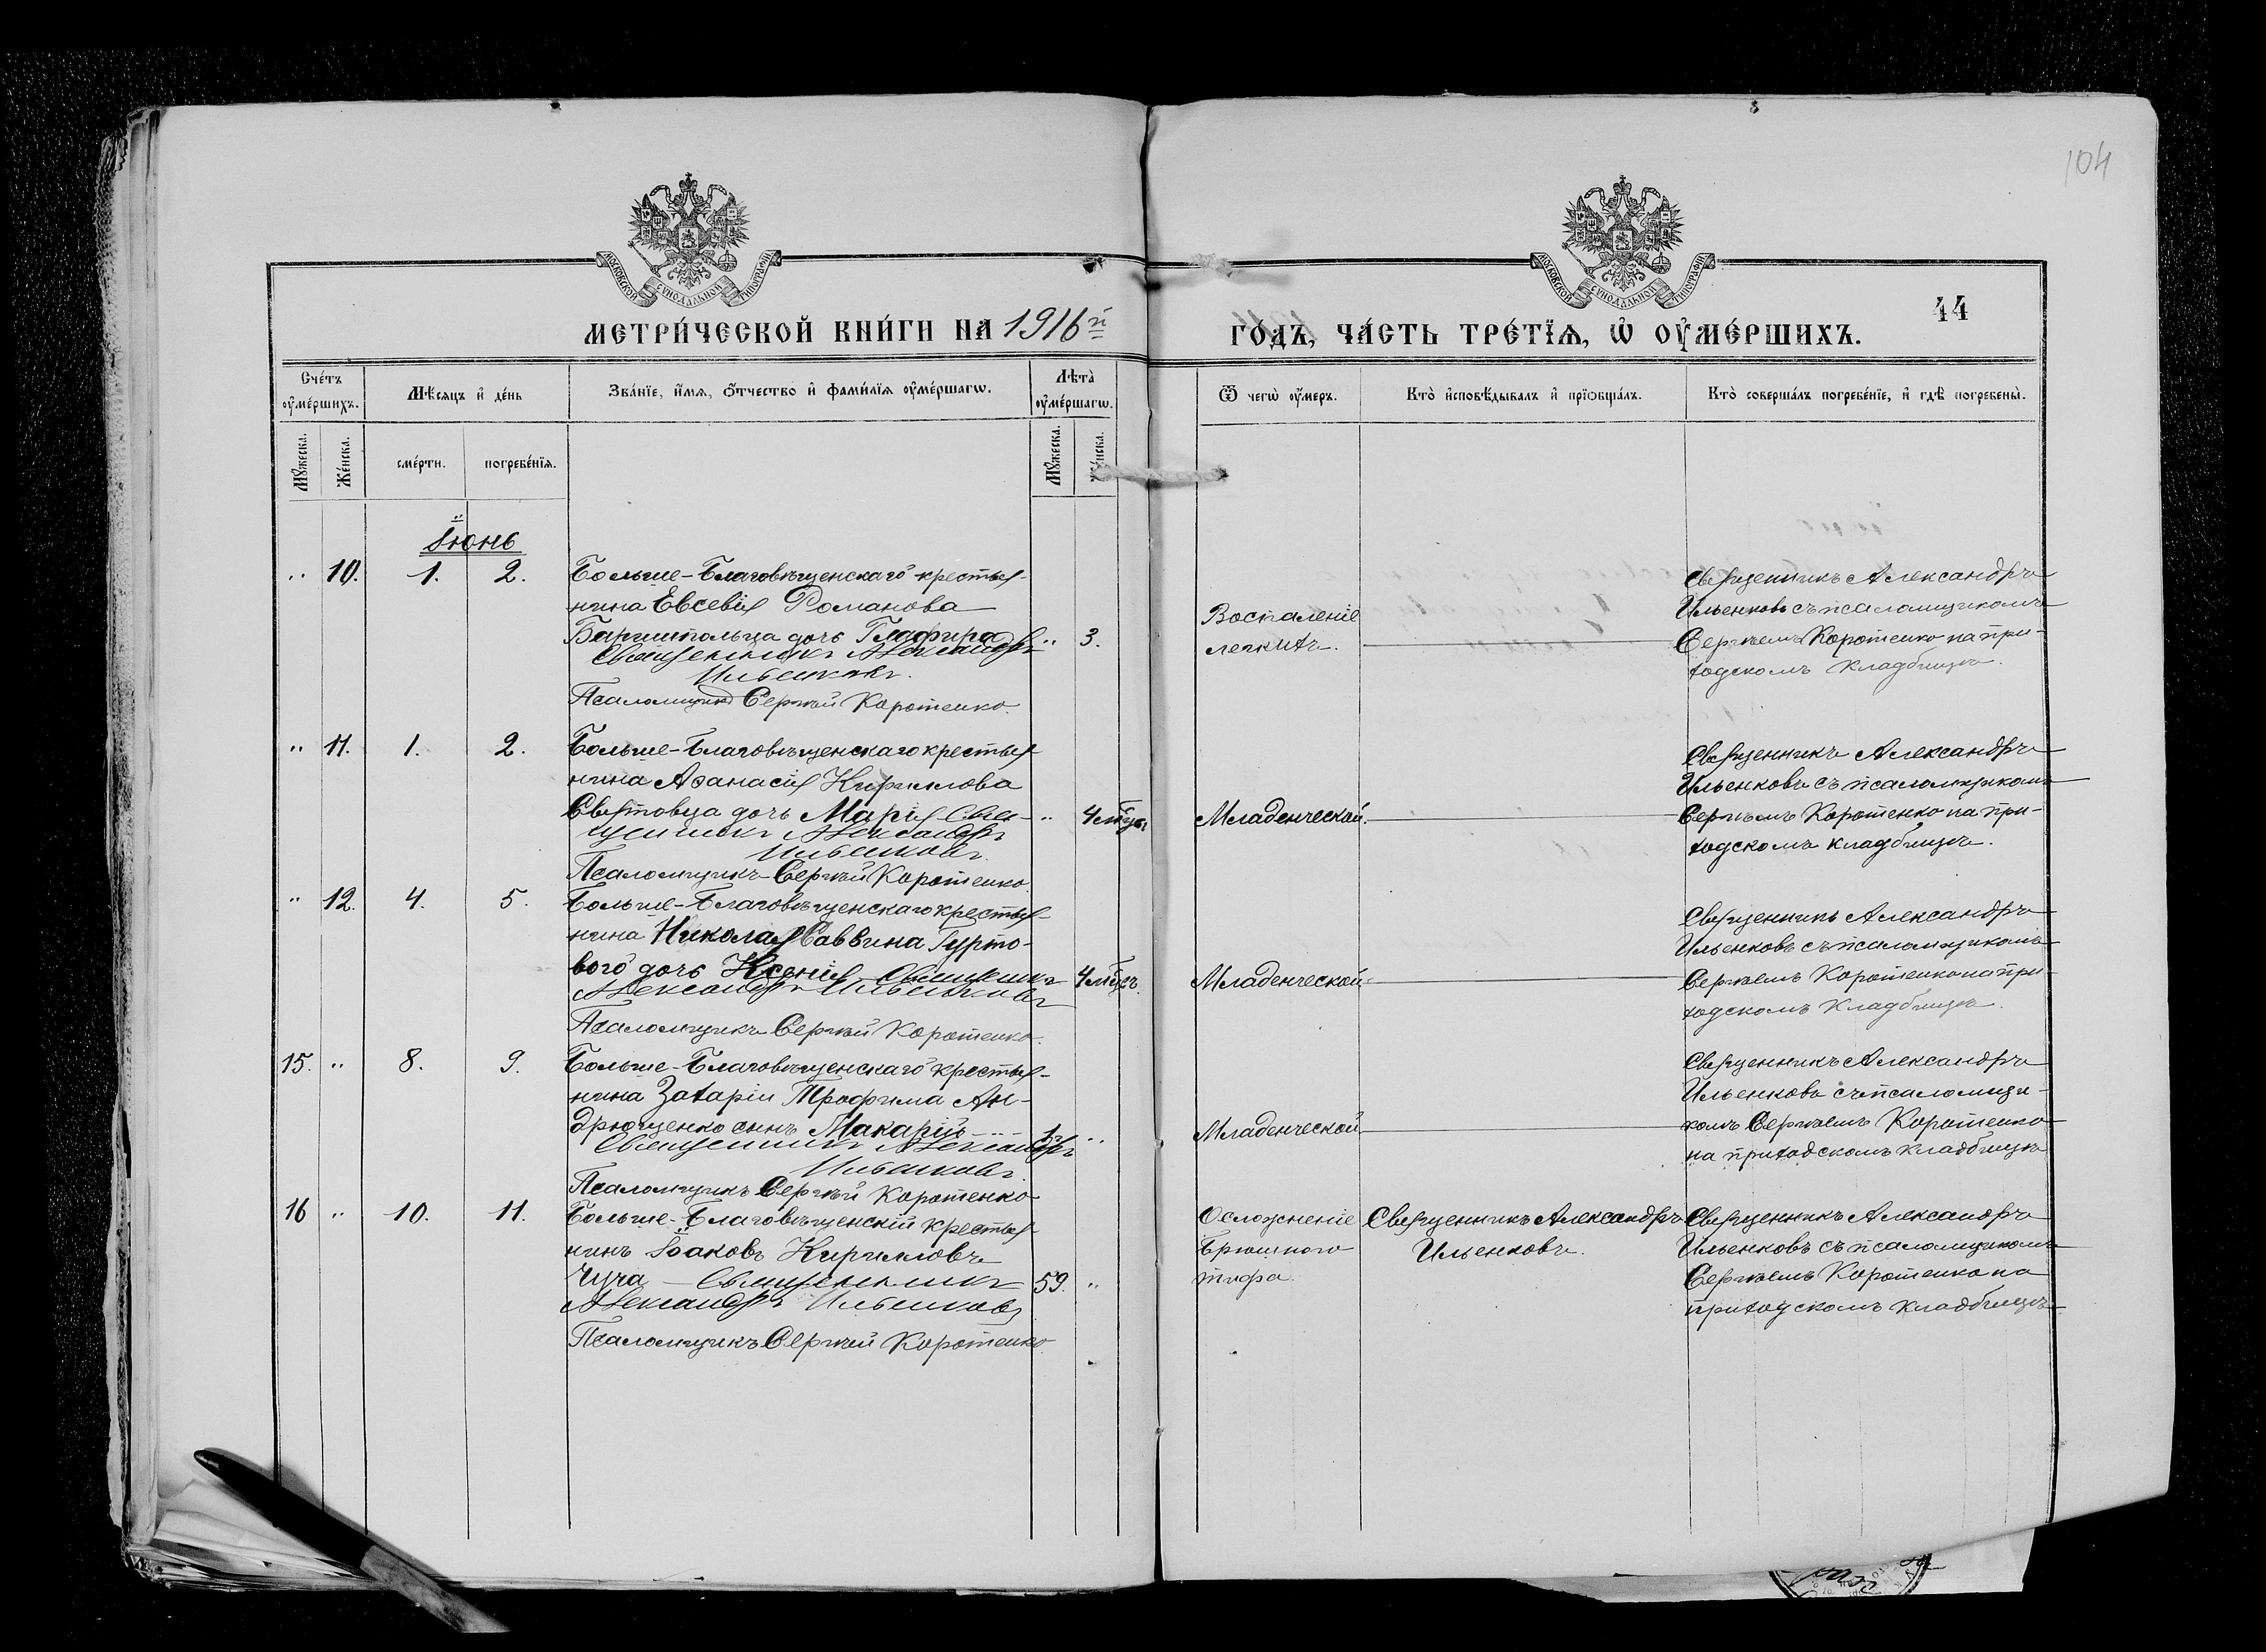 104
МОСКОВСКОЙ СѴНОДАЛЬНОЙ ТИПОГРАФІИ
МОСКОВСКОЙ СѴНОДАЛЬНОЙ ТИПОГРАФІИ
МЕТРИ́ЧЕСКОЙ КНИ́ГИ НА 1916й
ГО́ДЪ, ЧА́СТЬ ТРЕ́ТЇѦ, Ѡ҆ ОУ҆МЕ́РШИХЪ.
44
Сче́тъ оу҆ме́ршихъ.
Мѣ́сяцъ и҆ де́нь
Зва́нїе, и҆́мѧ, ѻ҆́тчество и҆ фами́лїѧ оу҆ме́ршагѡ.
Лѣ́та оу҆ме́ршагѡ.
Ѿ чегѡ̀ оу҆́меръ.
Кто̀ и҆сповѣ́дывалъ и҆ прїѻбща́лъ.
Кто̀ соверша́лъ погребе́нїе, и҆ гдѣ̀ погребены̀.
Мꙋ́жеска.
Же́нска.
сме́рти.
погребе́нїѧ.
Мꙋ́жеска.
Же́нска.
Іюнь
" 10. 1. 2.
Больше-Благовѣщенскаго крестья-
нина Евсевія Романова
дочь Глафира " 3.
Священникъ Александръ
Ильенковъ.
Псаломщикъ Сергѣй Коротенко.
Воспаленіе
легкихъ.
Священникъ Александръ
Ильенковъ съ псаломщикомъ
Сергѣемъ Коротенко на при-
ходскомъ кладбищѣ.
" 11. 1. 2.
Больше-Благовѣщенскаго крестья-
нина Аѳанасія Кириллова
Святовца дочь Марія Свя- " 4 мѣся
щенникъ Александръ
Ильенковъ.
Псаломщикъ Сергѣй Коротенко.
Младенческой.
Священникъ Александръ
Ильенковъ съ псаломщикомъ
Сергѣемъ Коротенко на при-
ходскомъ кладбищѣ.
" 12. 4. 5.
Больше-Благовѣщенскаго крестья-
нина Николая Саввина Гурто-
вого дочь Ксенія Священникъ 4 мѣсъ.
Александръ Ильенковъ
Псаломщикъ Сергѣй Коротенко.
Младенческой
Священникъ Александръ
Ильенковъ съ псаломщикомъ
Сергѣемъ Коротенко на при-
ходскомъ кладбищѣ.
15. " 8. 9.
Больше-Благовѣщенскаго крестья-
нина Захаріи Трофима Ан-
дрющенко сынъ Макарій "
Священникъ Александръ
Ильенковъ.
Псаломщикъ Сергѣй Коротенко
Младенческой
Священникъ Александръ
Ильенковъ съ псаломщи-
комъ Сергѣемъ Коротенко
на приходскомъ кладбищѣ
16 " 10. 11.
Больше-Благовѣщенскій крестья-
нинъ Іоаковъ Кирилловъ
Чуча — Священникъ 59. "
Александръ Ильенковъ
Псаломщикъ Сергѣй Коротенко.
Осложненіе
брюшного
тифа.
Священникъ Александръ
Ильенковъ.
Священникъ Александръ
Ильенковъ съ псаломщикомъ
Сергѣемъ Коротенко на
приходскомъ кладбищѣ